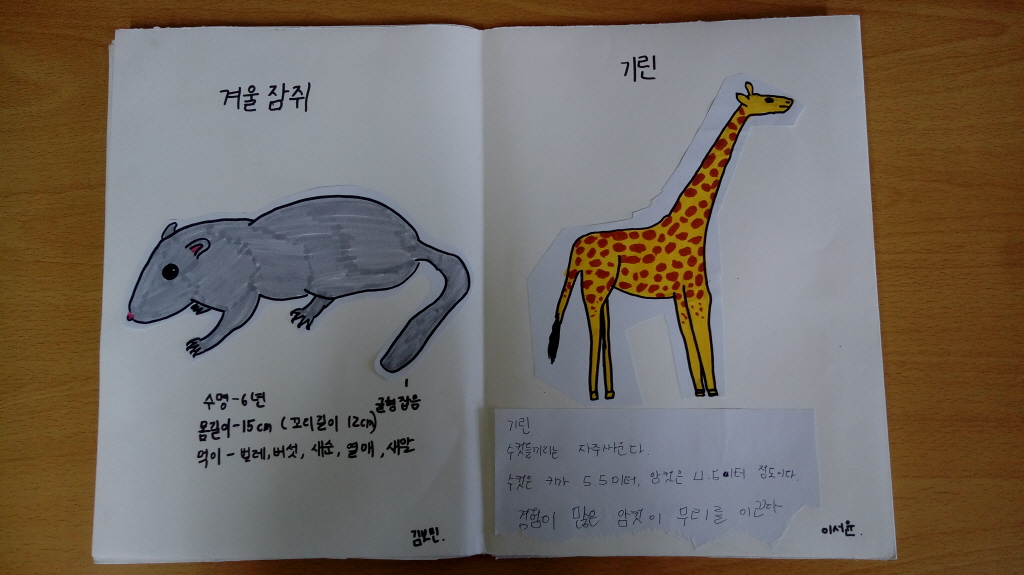 겨울 잠쥐
수명-6년
균형 잡음
몸길이-15cm (꼬리길이 12cm)
먹이 - 벌레, 버섯, 새순, 열매, 새알
김보민.
기린
기린
수컷들끼리는 자주싸운다.
수컷은 키가 5.5미터, 암컷은 4.5미터 정도이다.
경험이 많은 암컷이 무리를 이끈다
이서윤.